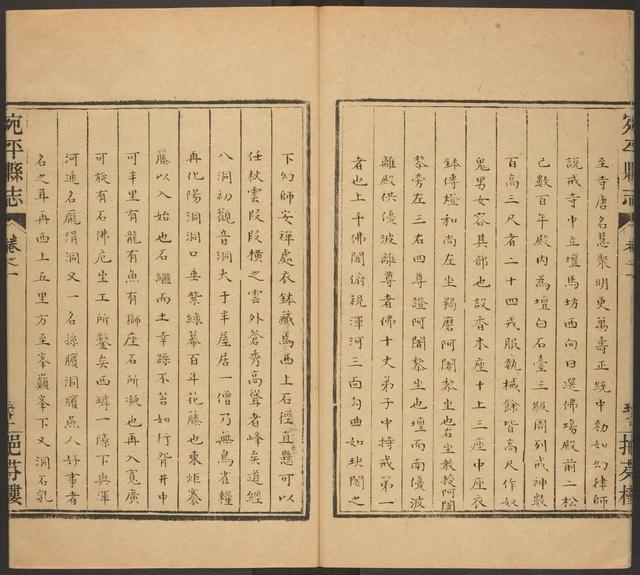 至寺唐名慧聚明更萬壽正統中勑如幻律師
說戒寺中立壇馬坊西向曰選佛場殿前二松
已數百年殿内為壇白石臺三級周列戒神數
百高三尺者二十四戎服執械餘皆高尺作奴
鬼男女容其部也設香木座十上三座中座衣
鉢傳燈和尚左坐羯磨阿闍黎坐也右坐教授阿闍
黎旁左三右四尊證阿闍黎坐也壇而南優波
離殿供優波離尊者佛十丈弟子中持戒第一
者也上千佛閣俯視渾河三面勾曲如玦閣之
宛平縣志
卷之一
挹芬樓
下幻師安禪處衣鉢藏焉西上石徑直懸可以
任杖雲段段橫之雲外蒼秀高聳者峰矣道經
八洞初觀音洞大于半屋居一僧乃無鳥雀糧
再化陽洞洞口垂紫綠蓦百年花藤也束炬褰
藤以入始也石繼而土幸躁不苔如行胥井中
可半里有龍有魚有獅座石所凝也再入寬廣
可旋有石佛危坐工所鑿矣西罅一隙下與渾
河通名龐涓洞又一名孫臏洞臏燕人好事者
名之耳再西上五里方至峯巔峯下又洞石乳
宛平縣志
卷之一
挹芬樓